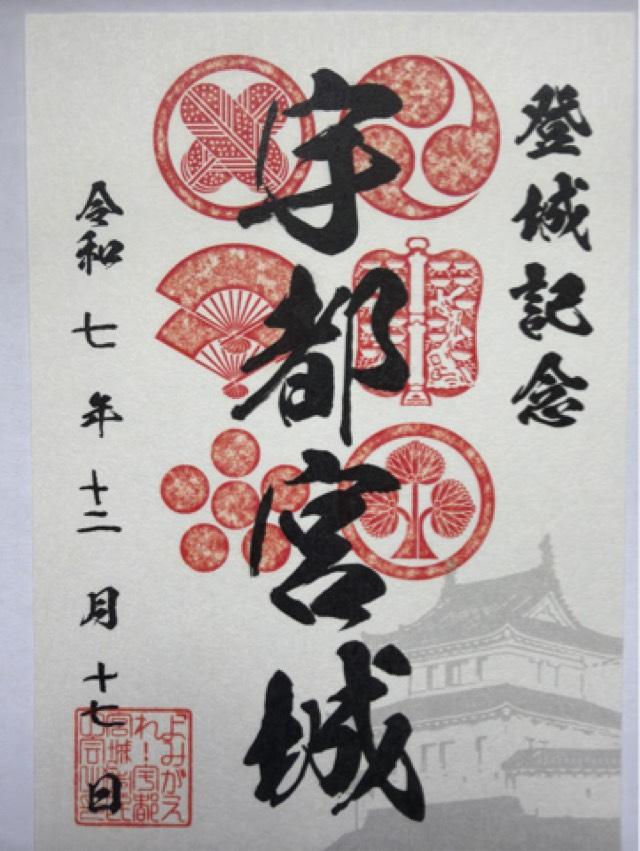 登城記念
宇都宮城
令和七年十二月十七日
よみがえ
れ！宇都
宮城市民
の会之印